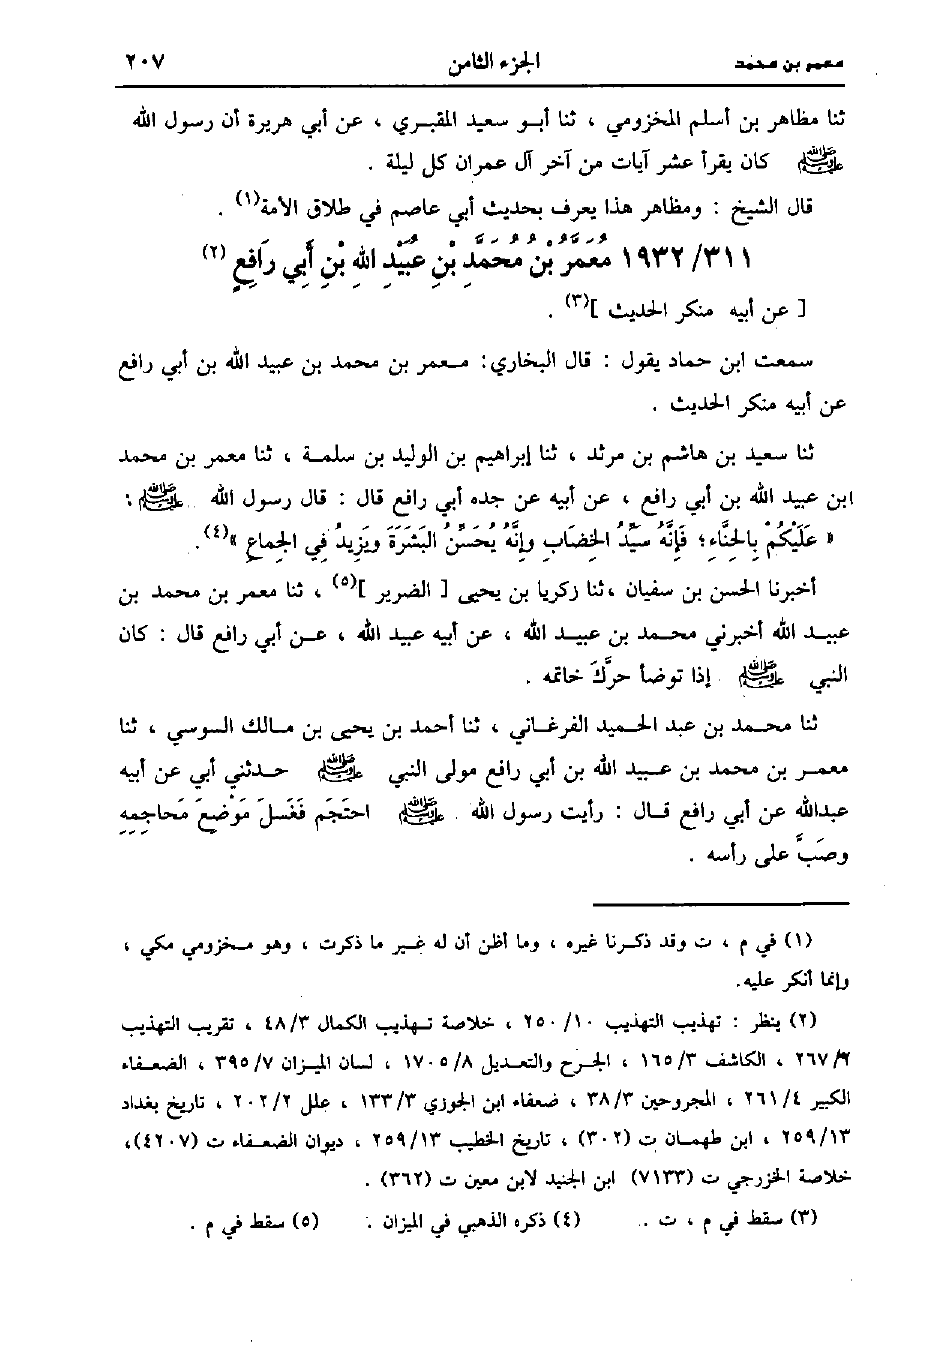 معمر بن محمد الجزء الثامن ٢٠٧
ثنا مظاهر بن أسلم المخزومي ، ثنا أبو سعيد المقبري ، عن أبي هريرة أن رسول الله
ﷺ كان يقرأ عشر آيات من آخر آل عمران كل ليلة .
قال الشيخ : ومظاهر هذا يعرف بحديث أبي عاصم في طلاق الأمة(١) .
١٩٣٢/٣١١ مُعَمَّرُ بْنُ مُحَمَّدِ بْنِ عُبَيْدِ اللهِ بْنِ أَبِي رَافِعٍ (٢)
[ عن أبيه منكر الحديث ](٣) .
سمعت ابن حماد يقول : قال البخاري: معمر بن محمد بن عبيد الله بن أبي رافع
عن أبيه منكر الحديث .
ثنا سعيد بن هاشم بن مرثد ، ثنا إبراهيم بن الوليد بن سلمة ، ثنا معمر بن محمد
ابن عبيد الله بن أبي رافع ، عن أبيه عن جده أبي رافع قال : قال رسول الله ﷺ :
« عَلَيْكُمْ بِالحِنَّاءِ؛ فَإِنَّهُ سَيِّدُ الخِضَابِ وإِنَّهُ يُحَسِّنُ البَشَرَةَ ويَزِيدُ فِي الجِمَاعِ »(٤).
أخبرنا الحسن بن سفيان ،ثنا زكريا بن يحيى [ الضرير ](٥) ، ثنا معمر بن محمد بن
عبيد الله أخبرني محمد بن عبيد الله ، عن أبيه عبيد الله ، عن أبي رافع قال : كان
النبي ﷺ إذا توضأ حرَّكَ خاتمه .
ثنا محمد بن عبد الحميد الفرغاني ، ثنا أحمد بن يحيى بن مالك السوسي ، ثنا
معمر بن محمد بن عبيد الله بن أبي رافع مولى النبي ﷺ حدثني أبي عن أبيه
عبدالله عن أبي رافع قال : رأيت رسول الله ﷺ احتَجَم فَغَسلَ مَوْضِعَ مَحاجِمِهِ
وصَبَّ على رأسه .
(١) في م ، ت وقد ذكرنا غيره ، وما أظن أن له غير ما ذكرت ، وهو مخزومي مكي ،
وإنما أنكر عليه.
(٢) ينظر : تهذيب التهذيب ٢٥٠/١٠ ، خلاصة تهذيب الكمال ٤٨/٣ ، تقريب التهذيب
٢٦٧/٢ ، الكاشف ١٦٥/٣ ، الجرح والتعديل ١٧٠٥/٨ ، لسان الميزان ٣٩٥/٧ ، الضعفاء
الكبير ٢٦١/٤ ، المجروحين ٣٨/٣ ، ضعفاء ابن الجوزي ١٣٣/٣ ، علل ٢٠٢/٢ ، تاريخ بغداد
٢٥٩/١٣ ، ابن طهمان ت (٣٠٢) ، تاريخ الخطيب ٢٥٩/١٣ ، ديوان الضعفاء ت (٤٢٠٧)،
خلاصة الخزرجي ت (٧١٣٣) ابن الجنيد لابن معين ت (٣٦٢) .
(٣) سقط في م ، ت .. (٤) ذكره الذهبي في الميزان . (٥) سقط في م .